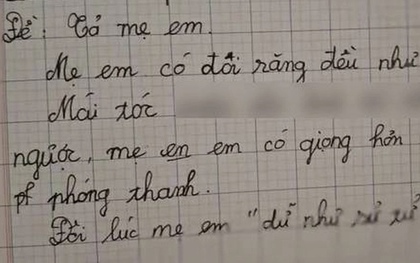 Đề: Tả mẹ em.
Mẹ em có đôi răng đều như
Mái tóc
người, mẹ em em có giọng hơn
phóng thanh.
Đôi lúc mẹ em "dữ như sư tử